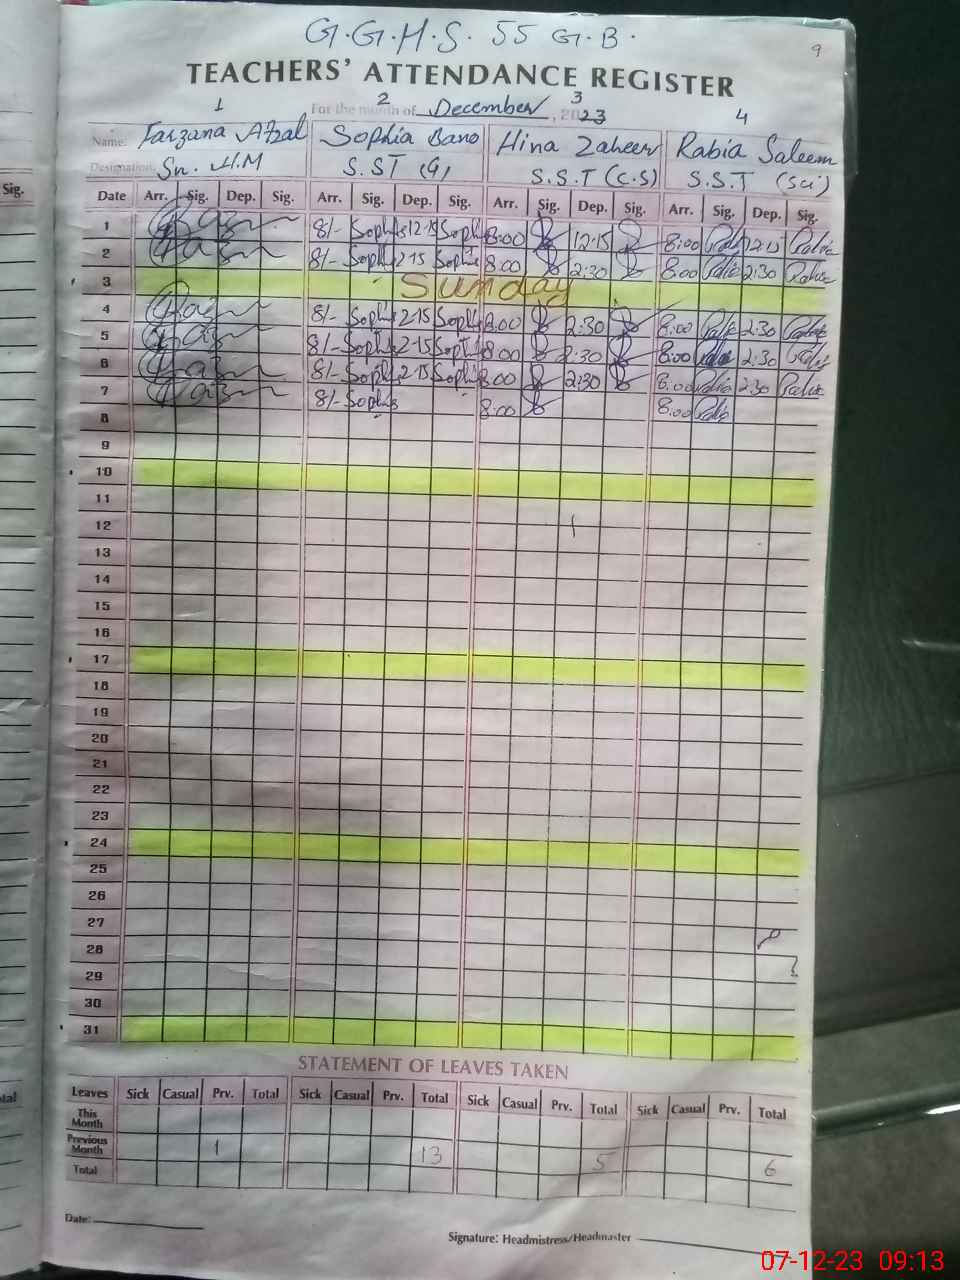 G.G.H.S. 55 G.B.
9
TEACHERS' ATTENDANCE REGISTER
1 2 3 4
For the month of December, 2023
Name: Farzana Afzal Sophia Bano Hina Zaheer Rabia Saleem
Designation: Sn. H.M S.ST (G) S.S.T (C.S) S.S.T (Sci)
Sig. Date Arr. Sig. Dep. Sig. Arr. Sig. Dep. Sig. Arr. Sig. Dep. Sig. Arr. Sig. Dep. Sig.
1 8/- Soph 12-15 Soph 8:00 12:15 8:00 12:15 Rabia
2 8/- Soph 2-15 Soph 8:00 2:30 8:00 2:30 Rabia
3 Sunday
4 8/- Soph 2-15 Soph 8:00 2:30 8:00 2:30
5 8/- Soph 2-15 Soph 8:00 2:30 8:00 2:30
6 8/- Soph 2-15 Soph 8:00 2:30 8:00 2:30 Rabia
7 8/- Soph 8:00 8:00
8
9
10
11
12
13
14
15
16
17
18
19
20
21
22
23
24
25
26
27
28
29
30
31
STATEMENT OF LEAVES TAKEN
Leaves Sick Casual Prv. Total Sick Casual Prv. Total Sick Casual Prv. Total Sick Casual Prv. Total
This Month
Previous Month 1 13 5 6
Total
Date:
Signature: Headmistress/Headmaster
07-12-23 09:13